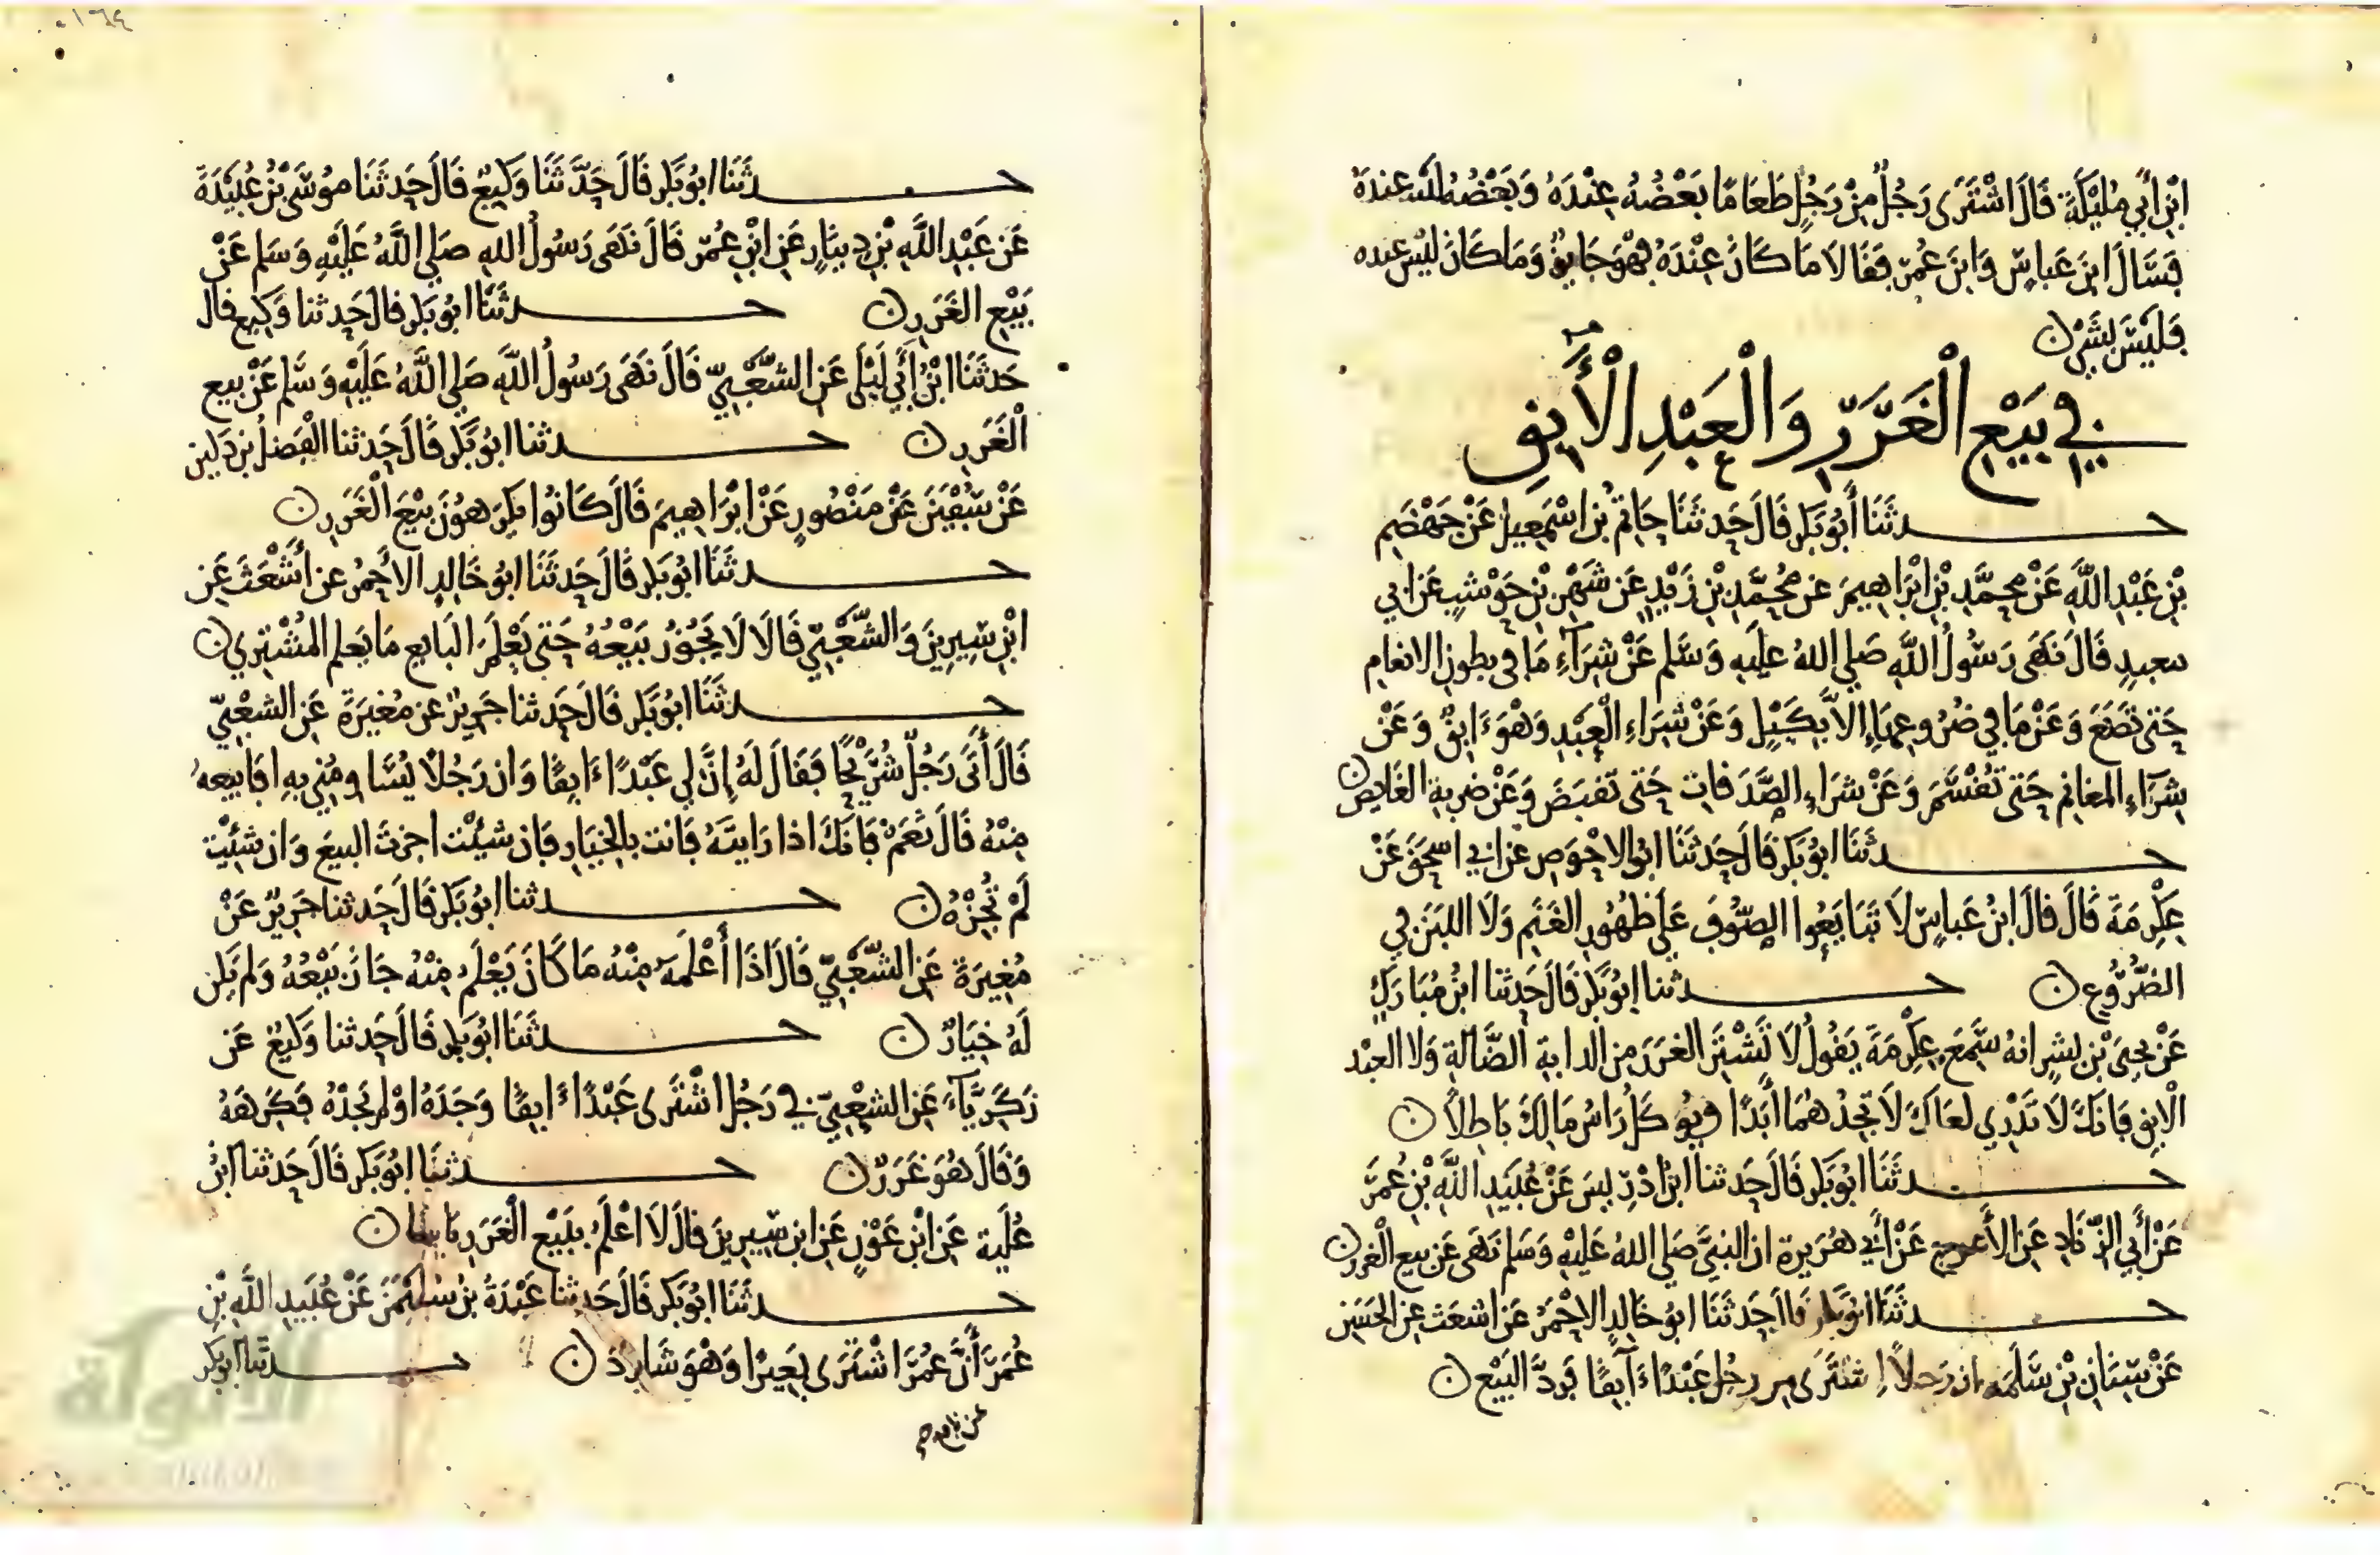 ابْنِ أَبِي مُلَيْكَةَ قَالَ اشْتَرَى رَجُلٌ مِنْ رَجُلٍ طَعَامًا بَعْضُهُ عِنْدَهُ وَبَعْضُهُ ليْسَ عِندَهُ
فَسَأَلَ ابنَ عَباسٍ وَابنَ عُمَرَ فَقَالَا مَا كَانَ عِنْدَهُ فَهْوَ جَايِزٌ وَمَا كَانَ ليْسَ عنده
فَلَيْسَ بشَيْءٍ
فِي بَيْعِ الْغَرَرِ وَالْعَبْدِ الْأبِقِ
حدثَنَا أَبُو بَكرٍ قَالَ حَدثَنَا حَاتِمُ بْنُ اسْمَعِيلَ عَنْ جَهْضَمِ
بْنِ عَبْدِ اللَّهِ عَنْ مُحمَّدِ بْنِ ابْرَاهِيمَ عن مُحَمَّدِ بْنِ زَيْدٍ عَن شَهْرِ بْنِ حَوْشَبٍ عَن ابي
سعيدٍ قَالَ نَهَى رَسُولُ اللَّهِ صَلى اللهُ عَليهِ وَسَلم عَنْ شِرَآءِ مَا في بطون الانعام
حَتى تَضَعَ وَعَنْ مَا فِي ضُرُوعِهَا إلاَّ بِكَيْلٍ وَعَنْ شِرَاءِ الْعَبْدِ وَهْوَ ءَابِقٌ وَعَنْ
شِرَآءِ المغَانِمِ حَتى تُقْسَمَ وَعَنْ شرَاءِ الصَّدَقاتِ حَتى تُقبَضَ وَعَنْ ضربةِ الغَايِصِ
حدثَنَا ابُو بَكرٍ قَالَ حَدثَنَا ابُو الاحْوَصِ عَن ابي اسحَقَ عَنْ
عِكْرِمَةَ قَالَ قَالَ ابنُ عَباسٍ لَا تَبَايَعُوا الصُّوفَ عَلَى ظُهُورِ الغَنَمِ وَلَا اللبَنَ فِي
الضُّرُوعِ حدثنا ابُو بَكرٍ قَالَ حَدثنا ابنُ مُبَارَكٍ
عَنْ يحيَى بْنِ بشرٍ انهُ سَمِعَ عِكْرِمَةَ يَقُولُ لَا تَشْتَرِ الغرَرَ مِن الدابةِ الضَّالَّةِ وَلا العبْد
الْابِقِ فَانكَ لَا تَدْرِي لعَلكَ لَا تجدُهُمَا أَبَدًا وَيُؤكَلُ رَاسُ مَالِكَ بَاطِلًا
حدثَنَا ابُو بَكرٍ قَالَ حَدثنا ابنُ ادْرِيسَ عَنْ عُبَيدِ اللَّهِ بْنِ عُمَرَ
عَنْ أَبِي الزِّنَادِ عَنِ الأَعْرَجِ عَنْ أَبِي هُرَيرةَ ان النبيَّ صَلى اللهُ عَليْهِ وَسَلم نَهَى عَن بيع الْغَررِ
حدثَنَا ابُو بَكرٍ قَالَ حَدثَنَا ابُو خَالِدٍ الاحْمَرُ عَن اشعَث عنِ الحَسَنِ
عَنْ سِنَانِ بْنِ سَلَمَةَ ان رَجلًا اشتَرَى من رجُلٍ عَبْدًا ءَابِقًا فَرَدَّ البَيْع
حدثَنَا ابُو بَكرٍ قَالَ حَدَّثَنَا وَكِيعٌ قَالَ حَدثَنَا مُوسَى بْنُ عُبَيْدَةَ
عَن عَبْدِ اللَّهِ بْنِ دِينَارٍ عَنِ ابْنِ عُمَرَ قَالَ نَهَى رَسُولُ اللهِ صَلى اللَّهُ عَلَيْهِ وَسَلم عَنْ
بَيْعِ الغَرَرِ حدثَنَا ابُو بَكرٍ قالَ حَدثنا وَكِيع قال
حَدثَنَا ابْنُ أَبِي لَيْلَى عَنِ الشَّعْبِيِّ قَالَ نَهَى رَسُولُ اللَّهِ صَلى اللَّهُ عَلَيْهِ وَسَلم عَنْ بيع
الْغَرَرِ حدثنا ابُو بَكرٍ قَالَ حَدثنا الْفَضلُ بن دَكينٍ
عَنْ سُفْيَنَ عَنْ مَنْصُورٍ عَنْ ابْرَاهِيمَ قَالَ كَانُوا يَكرَهُونَ بَيْعَ الْغَرَرِ
حدثَنَا ابُو بَكرٍ قَالَ حَدثَنَا ابُو خَالِدٍ الاحْمرُ عن أَشْعَثَ عَنِ
ابْنِ سِيرِينَ وَالشَّعْبِيِّ قَالَا لَا يَجُوزُ بَيْعُهُ حَتى يَعْلَمَ البَايع مَا يَعلم المُشْتَرِي
حدثَنَا ابُو بَكرٍ قَالَ حَدثنا جَرِيرٌ عن مُغيرَةَ عَنِ الشعْبِيِّ
قَالَ أَتَى رَجُلٌ شُرَيْحًا فَقَالَ لَهُ إِنَّ لِي عَبْدًا ءَابِقًا وَان رَجُلًا يُسَاومُنِي بِهِ افَابيعهُ
مِنْهُ قَالَ نَعَمْ فَانكَ اذا رَايتَهُ فَانت بالخيَارِ فَان شئْت اجزتَ البيعَ وَان شئْت
لَمْ تُجِزْهُ حدثنا ابُو بَكرٍ قَالَ حَدثنا جَرِيرٌ عَنْ
مُغِيرَةَ عَنِ الشَّعْبِيِّ قَالَ اذَا أَعْلَمَهُ مِنْهُ مَا كَانَ يَعْلَمُ مِنْهُ جَازَ بَيْعُهُ وَلم يَكن
لَهُ خِيَارٌ حدثَنَا ابُو بَكرٍ قَالَ حَدثنا وَكيعٌ عَن
زَكَرِيَّآءَ عَنِ الشعْبِيِّ في رَجُلٍ اشْتَرَى عَبْدًا ءَابِقًا وَجَدَهُ اوْ لم يَجدْهُ فَكَرهَهُ
وَقَالَ هُوَ غَرَرٌ حدثنَا ابُو بَكرٍ قَالَ حَدثنا ابْنُ
عُلَيةَ عَنِ ابْنِ عَوْنٍ عَنِ ابنِ سِيرِينَ قَالَ لَا اعْلَمُ بِبَيْعِ الْغَرَرِ بَاسًا
حدثَنَا ابُو بَكرٍ قَالَ حَدثنا عَبْدَةُ بْنُ سُلَيْمَنَ عَنْ عُبَيدِ اللَّهِ بْنِ
عُمَرَ أَنَّ عُمَرَ اشْتَرَى بَعِيرًا وَهْوَ شَارِدٌ حدثنا ابُو بَكر
عن نافع
الألوكة
١٦٤